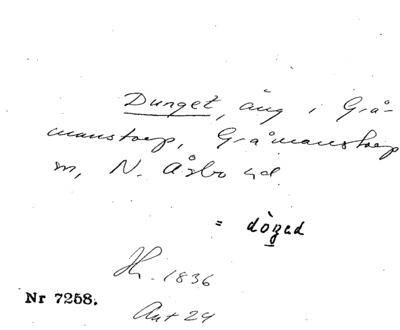 Dunget, äng i Grå-
manstorp, Gråmanstorp
sn, N. Åsbo hd.
= dòŋed
Hr. 1836
Nr 7258.
Ant 24